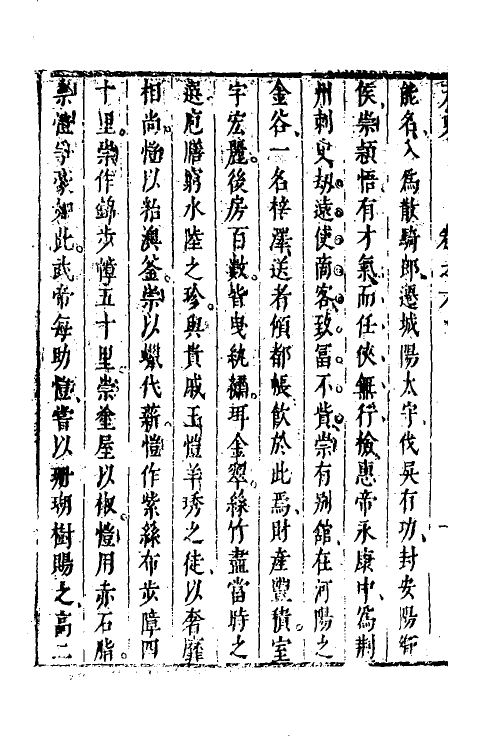 能名入為散騎郎遷城陽太守伐吳有功封安陽鄉
侯崇頴悟有才氣而任俠無行檢惠帝永康中為荆
州刺史劫遠使商客致富不貲崇有别舘在河陽之
金谷一名梓澤送者傾都帳飲於此焉財產豐積室
宇宏麗後房百數皆曳紈繡珥金翠絲竹盡當時之
選庖膳窮水陸之珍與貴戚王愷羊琇之徒以奢靡
相尚愷以粘澳釜崇以蠟代薪愷作紫絲布步障四
十里崇作錦步幛五十里崇塗屋以椒愷用赤石脂
崇愷爭豪如此武帝每助愷嘗以珊瑚樹賜之高二